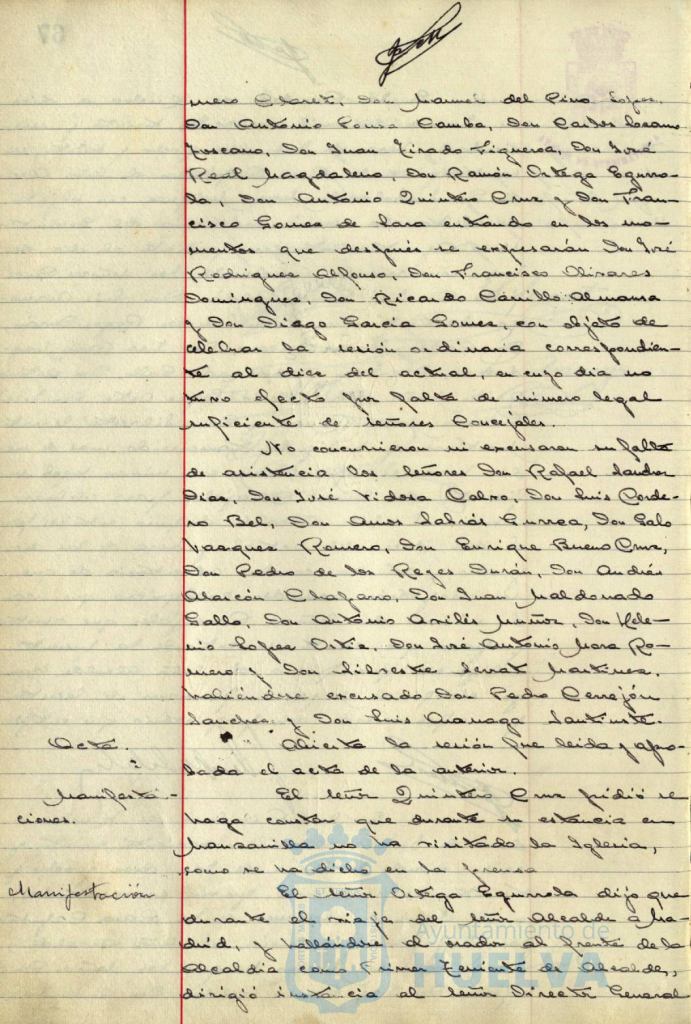 mero Claret, Don Manuel del Pino Lopez.
Don Antonio Pousa Camba, Don Carlos Lozano
Toscano, Don Juan Tirado Figueroa, Don José
Real Magdaleno, Don Ramón Ortega Egurro-
la, Don Antonio Quintero Cruz y Don Fran-
cisco Gomez de Lara entrando en los mo-
mentos que después se expresarán Don José
Rodriguez Alfonso, Don Francisco Olivares
Dominguez, Don Ricardo Carrillo Almansa
y Don Diego Garcia Gomez, con objeto de
celebrar la sesión ordinaria correspondien-
te al diez del actual, en cuyo dia no
tuvo efecto por falta de número legal
suficiente de señores Concejales.
No concurrieron ni excusaron su falta
de asistencia los señores Don Rafael Sandez
Diaz, Don José Vidosa Calvo, Don Luis Corde-
ro Bel, Don Amos Sabrás Gurrea, Don Galo
Vazquez Romero, Don Enrique Bueno Cruz,
Don Pedro de los Reyes Durán, Don Andrés
Alarcón Chaparro, Don Juan Maldonado
Gallo, Don Antonio Avilés Muñoz, Don Hele-
nio Lopez Ortiz, Don José Antonio Mora Ro-
mero y Don Silvestre Serrat Martinez.
habiéndose excusado Don Pedro Cerrejón
Sanchez y Don Luis
Acta.
Abierta la sesión fue leida y apro-
bada el acta de la anterior.
Manifesta-
ciones.
El señor Quintero Cruz pidió se
haga constar que durante su estancia en
Manzanilla no ha visitado la Iglesia,
como se ha dicho en la prensa
Manifestación
El señor Ortega Egurrola dijo que
durante el viaje del señor Alcalde a Ma-
drid, y hallándose el orador al frente de la
Alcaldia como Primer Teniente de Alcalde,
dirigió instancia al señor Director General
Ayuntamiento de
HUELVA